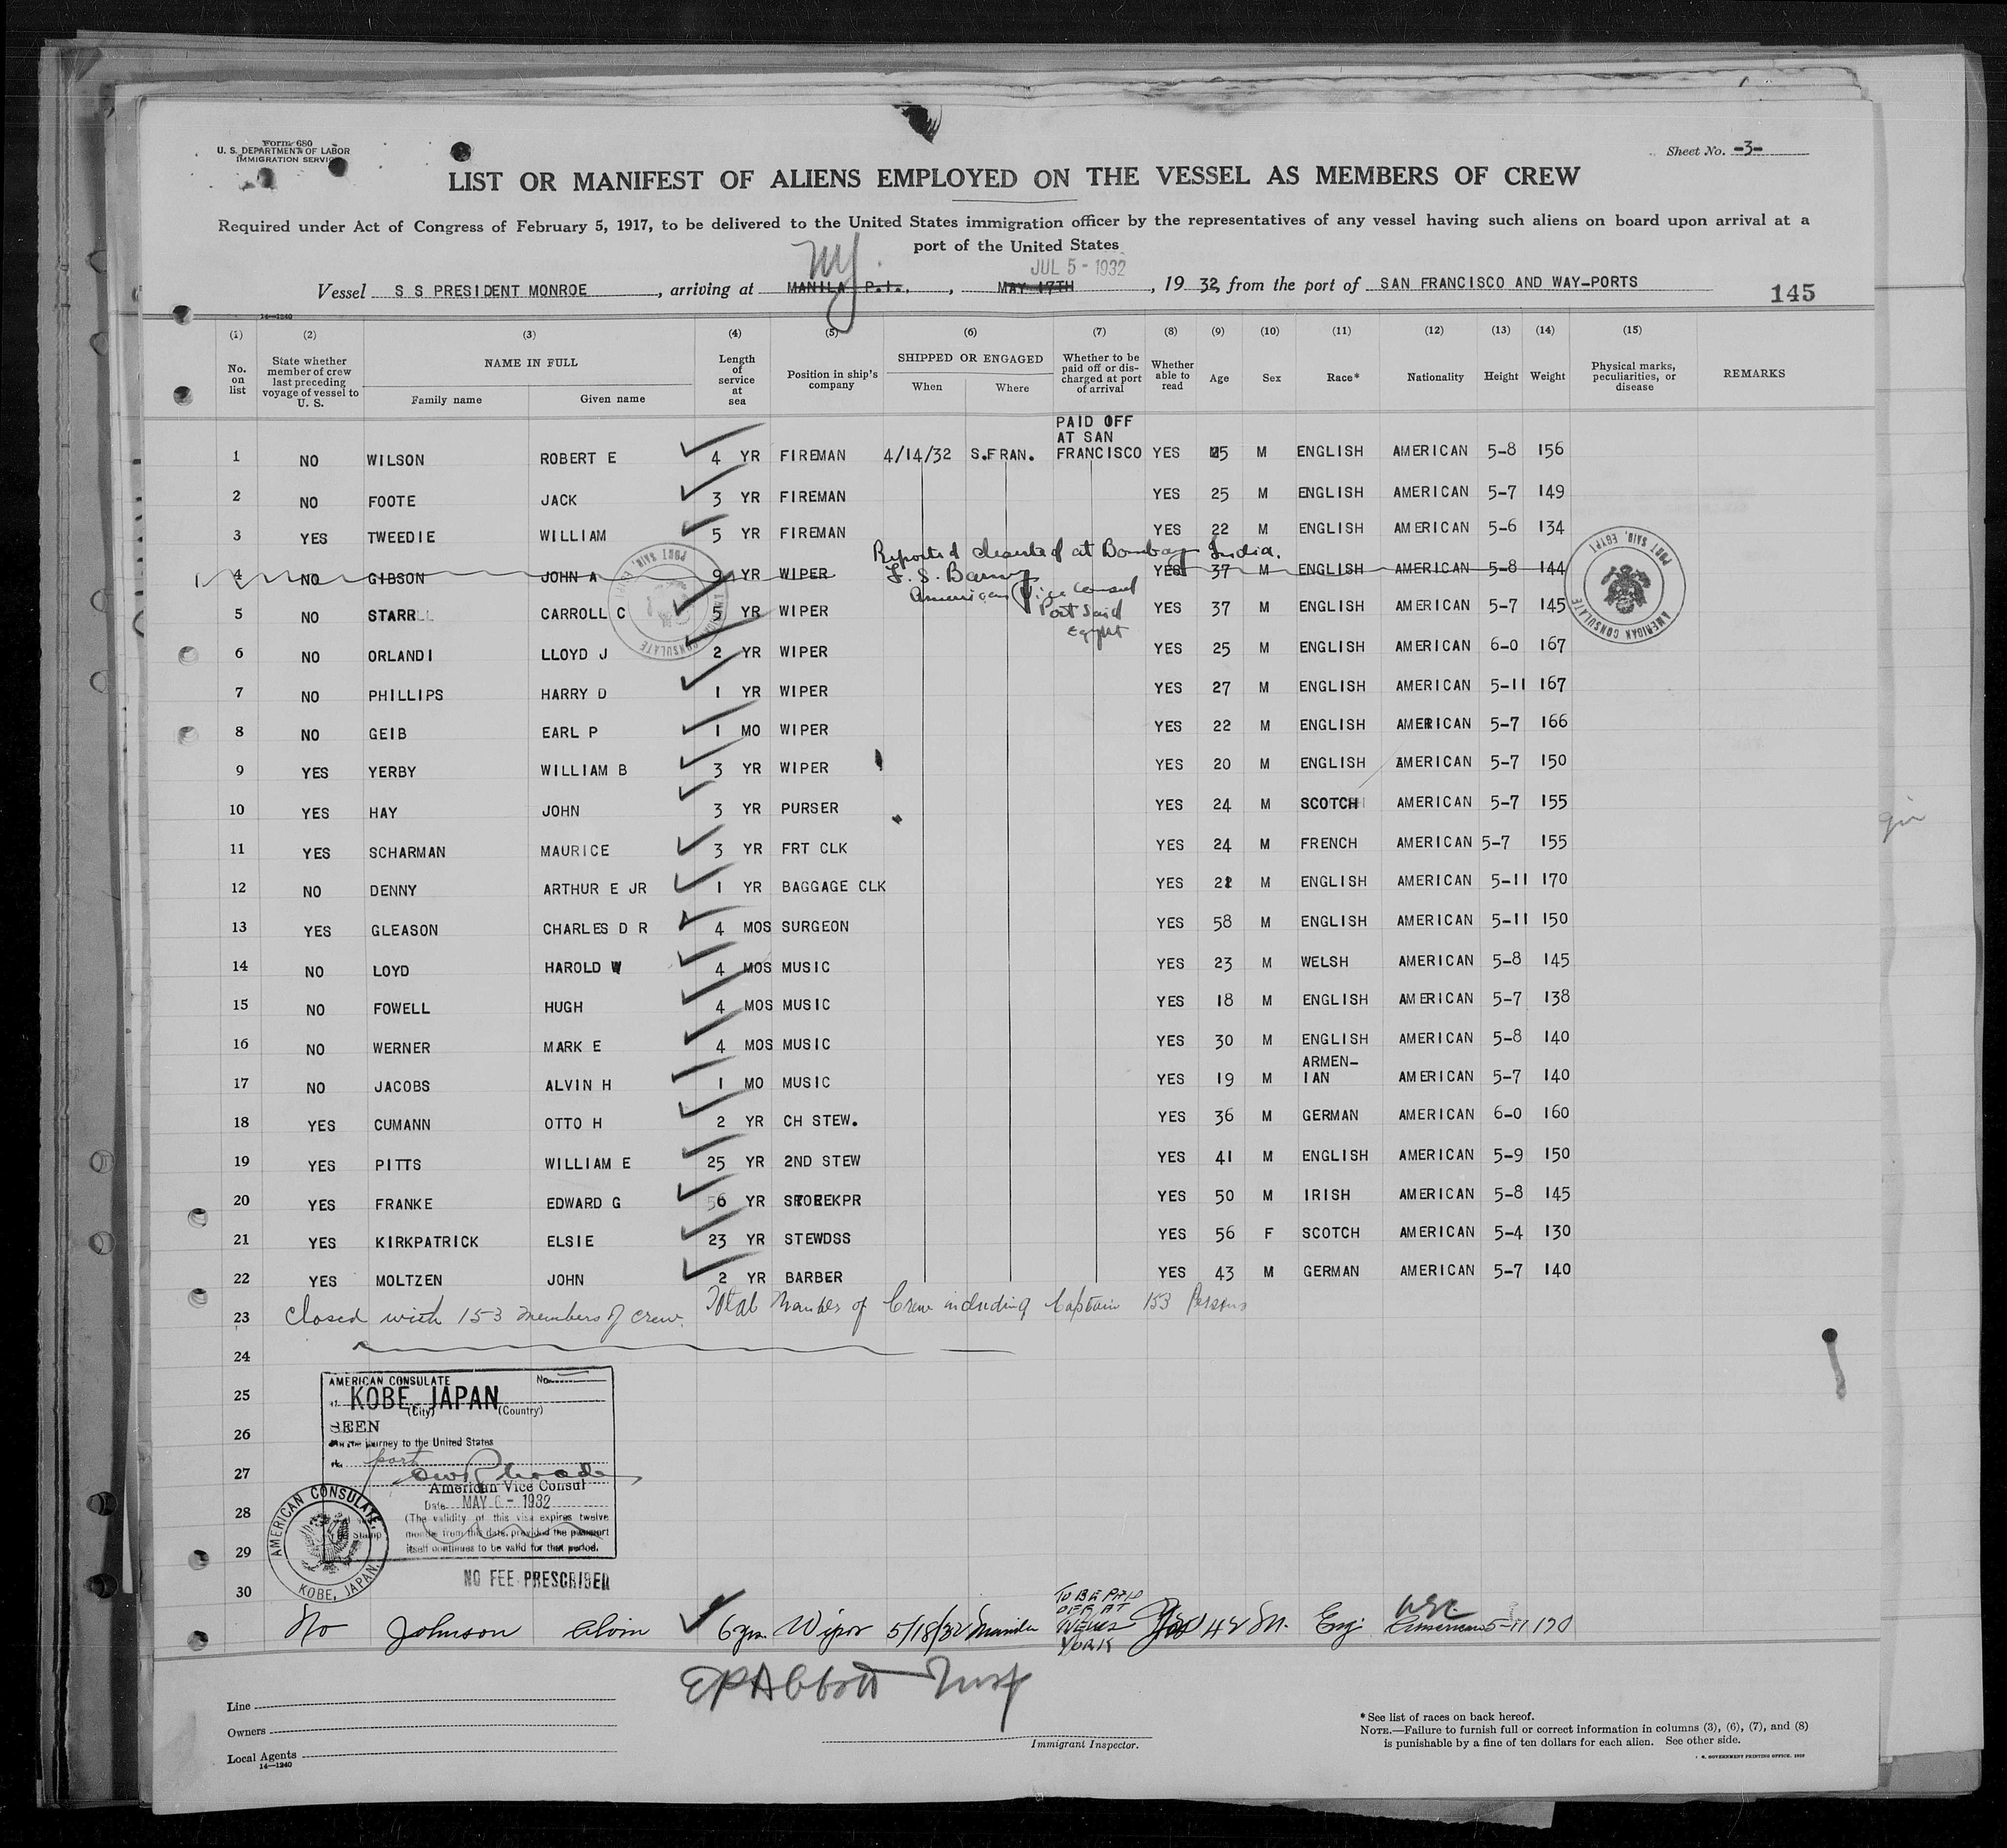 Form 680
U. S. DEPARTMENT OF LABOR
IMMIGRATION SERVICE
Sheet No. -3-
LIST OR MANIFEST OF ALIENS EMPLOYED ON THE VESSEL AS MEMBERS OF CREW
Required under Act of Congress of February 5, 1917, to be delivered to the United States immigration officer by the representatives of any vessel having such aliens on board upon arrival at a
port of the United States
NY. JUL 5 - 1932
Vessel S S PRESIDENT MONROE, arriving at MANILA P.I., MAY 17TH, 1932, from the port of SAN FRANCISCO AND WAY-PORTS
145
14—1240
(1) (2) (3) (4) (5) (6) (7) (8) (9) (10) (11) (12) (13) (14) (15)
No. on list State whether member of crew last preceding voyage of vessel to U. S. NAME IN FULL Family name Given name Length of service at sea Position in ship's company SHIPPED OR ENGAGED When Where Whether to be paid off or discharged at port of arrival Whether able to read Age Sex Race* Nationality Height Weight Physical marks, peculiarities, or disease REMARKS
PAID OFF
AT SAN
1 NO WILSON ROBERT E 4 YR FIREMAN 4/14/32 S.FRAN. FRANCISCO YES 25 M ENGLISH AMERICAN 5-8 156
2 NO FOOTE JACK 3 YR FIREMAN YES 25 M ENGLISH AMERICAN 5-7 149
3 YES TWEEDIE WILLIAM 5 YR FIREMAN YES 22 M ENGLISH AMERICAN 5-6 134
Reported deserted at Bombay India.
4 NO GIBSON JOHN A 9 YR WIPER YES 37 M ENGLISH AMERICAN 5-8 144
American Vice Consul
Port Said
Egypt
5 NO STARR CARROLL C 5 YR WIPER YES 37 M ENGLISH AMERICAN 5-7 145
AMERICAN CONSULATE PORT SAID, EGYPT
AMERICAN CONSULATE PORT SAID, EGYPT
6 NO ORLANDI LLOYD J 2 YR WIPER YES 25 M ENGLISH AMERICAN 6-0 167
7 NO PHILLIPS HARRY D 1 YR WIPER YES 27 M ENGLISH AMERICAN 5-11 167
8 NO GEIB EARL P 1 MO WIPER YES 22 M ENGLISH AMERICAN 5-7 166
9 YES YERBY WILLIAM B 3 YR WIPER YES 20 M ENGLISH AMERICAN 5-7 150
10 YES HAY JOHN 3 YR PURSER YES 24 M SCOTCH AMERICAN 5-7 155
11 YES SCHARMAN MAURICE 3 YR FRT CLK YES 24 M FRENCH AMERICAN 5-7 155
12 NO DENNY ARTHUR E JR 1 YR BAGGAGE CLK YES 21 M ENGLISH AMERICAN 5-11 170
13 YES GLEASON CHARLES D R 4 MOS SURGEON YES 58 M ENGLISH AMERICAN 5-11 150
14 NO LOYD HAROLD W 4 MOS MUSIC YES 23 M WELSH AMERICAN 5-8 145
15 NO FOWELL HUGH 4 MOS MUSIC YES 18 M ENGLISH AMERICAN 5-7 138
16 NO WERNER MARK E 4 MOS MUSIC YES 30 M ENGLISH AMERICAN 5-8 140
17 NO JACOBS ALVIN H 1 MO MUSIC YES 19 M ARMEN-IAN AMERICAN 5-7 140
18 YES CUMANN OTTO H 2 YR CH STEW. YES 36 M GERMAN AMERICAN 6-0 160
19 YES PITTS WILLIAM E 25 YR 2ND STEW YES 41 M ENGLISH AMERICAN 5-9 150
20 YES FRANKE EDWARD G 56 YR STOREKPR YES 50 M IRISH AMERICAN 5-8 145
21 YES KIRKPATRICK ELSIE 23 YR STEWDSS YES 56 F SCOTCH AMERICAN 5-4 130
22 YES MOLTZEN JOHN 2 YR BARBER YES 43 M GERMAN AMERICAN 5-7 140
23 Closed with 153 members of crew. Total Number of Crew including Captain 153 Persons
24
25
26
27
28
29
30
AMERICAN CONSULATE No.
at KOBE, JAPAN
(City) (Country)
SEEN
For the journey to the United States
port
American Vice Consul
Date MAY 6 - 1932
(The validity of this visa expires twelve
months from this date, provided the passport
itself continues to be valid for that period.
Stamp
AMERICAN CONSULATE, KOBE, JAPAN.
NO FEE PRESCRIBED
No Johnson Alvin 6 yrs. Wiper 5/18/32 Manila TO BE PAID OFF AT NEW YORK Yes 42 M. Eng American 5-11 170
EP Abbott Insp
Line
Owners
Local Agents
14—1240
Immigrant Inspector.
* See list of races on back hereof.
NOTE.—Failure to furnish full or correct information in columns (3), (6), (7), and (8)
is punishable by a fine of ten dollars for each alien. See other side.
U. S. GOVERNMENT PRINTING OFFICE. 1929